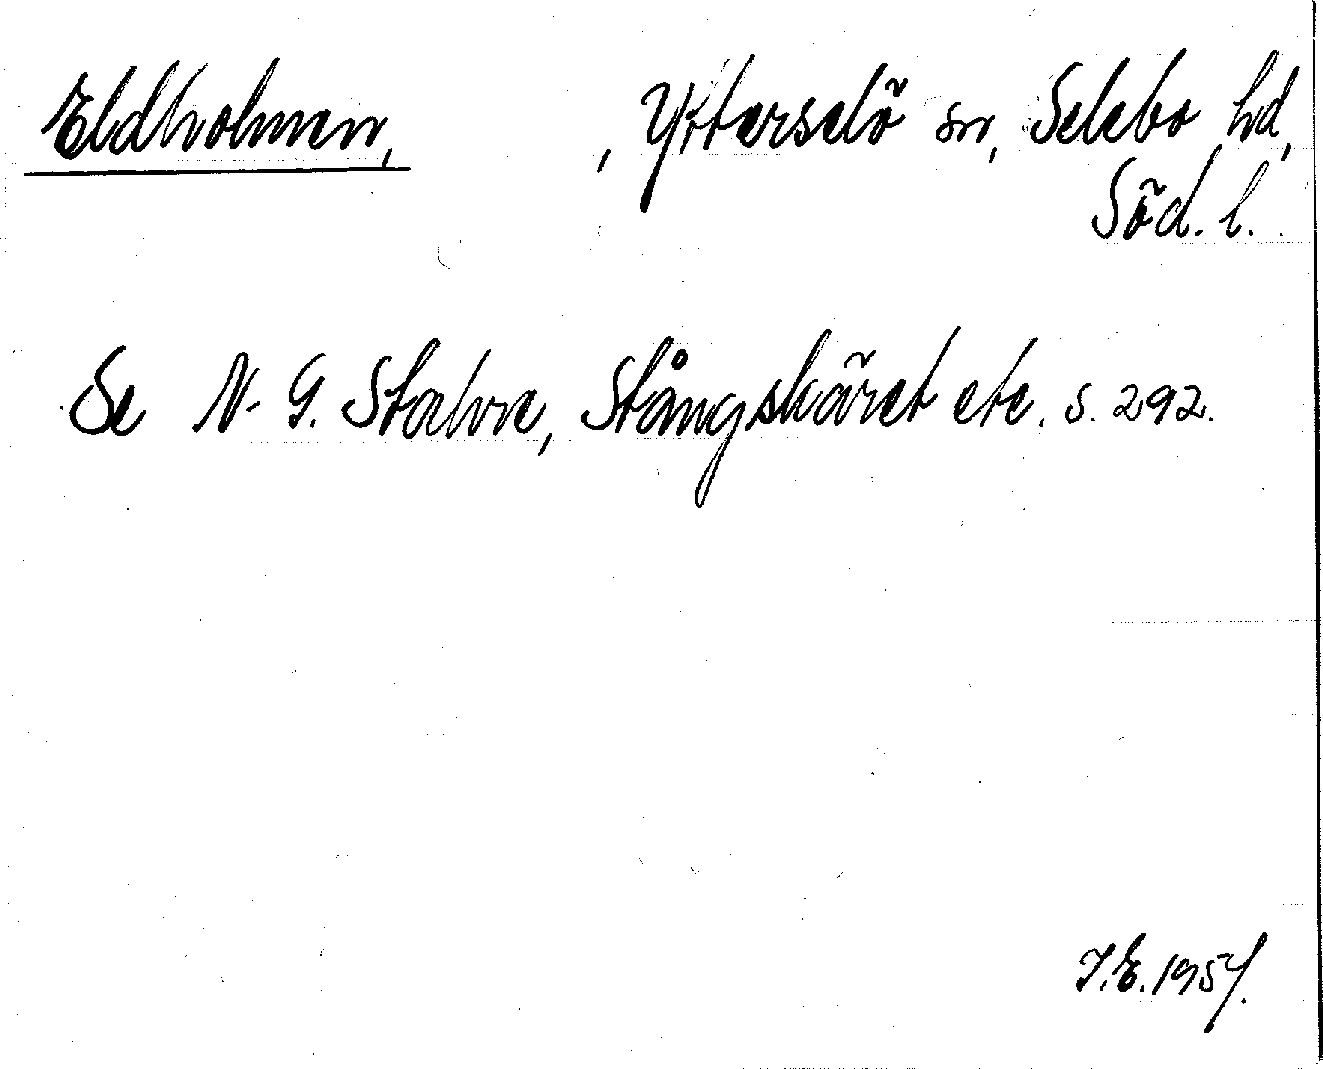 Eldholmen, , Ytterselö sn, Selebo hd,
Söd. l.
Se N. G. Stahre, Stångskäret etc. s. 292.
I.E. 1957.